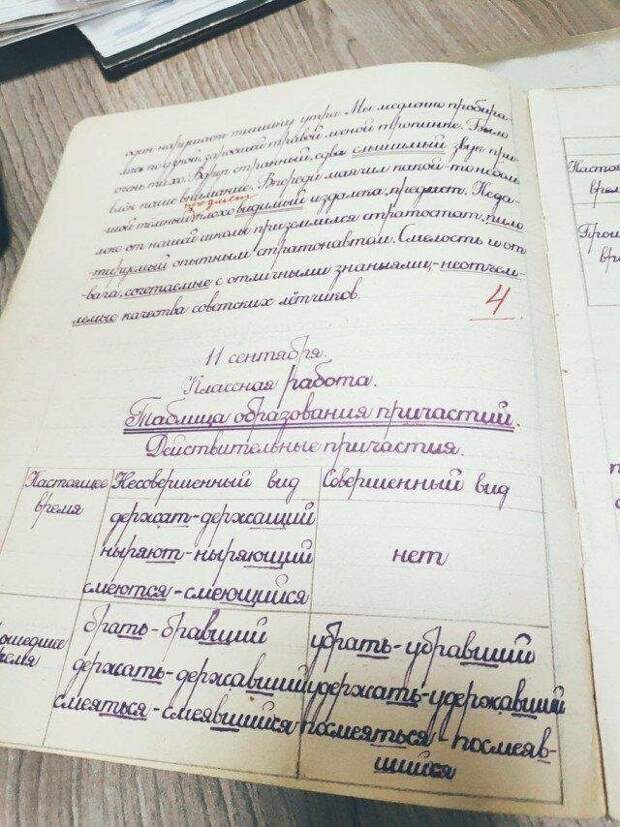 один нарушает тишину утра. Мы медленно пробира-
лись по одной заросшей травой лесной тропинке. Было
очень тихо. Вдруг странный, едва слышимый звук при-
влёк наше внимание. Впереди маячил какой-то неболь-
предмет
шой тёмный, плохо видимый издалека, предмет. Неда-
леко от нашей школы приземлился стратостат, пило-
тируемый опытным стратонавтом. Смелость и от-
вага, сочетаемые с отличными знаниями, - неотъем-
лемые качества советских лётчиков.
4
11 сентября.
Классная работа.
Таблица образования причастий.
Действительные причастия.
Настоящее время
Несовершенный вид
Совершенный вид
держат - держащий
ныряют - ныряющий
смеются - смеющийся
нет
ошедшее
время
брать - бравший
держать - державший
смеяться - смеявшийся
убрать - убравший
удержать - удержавший
посмеяться - посмеяв-
шийся
Настоя
врем
Прош
вр